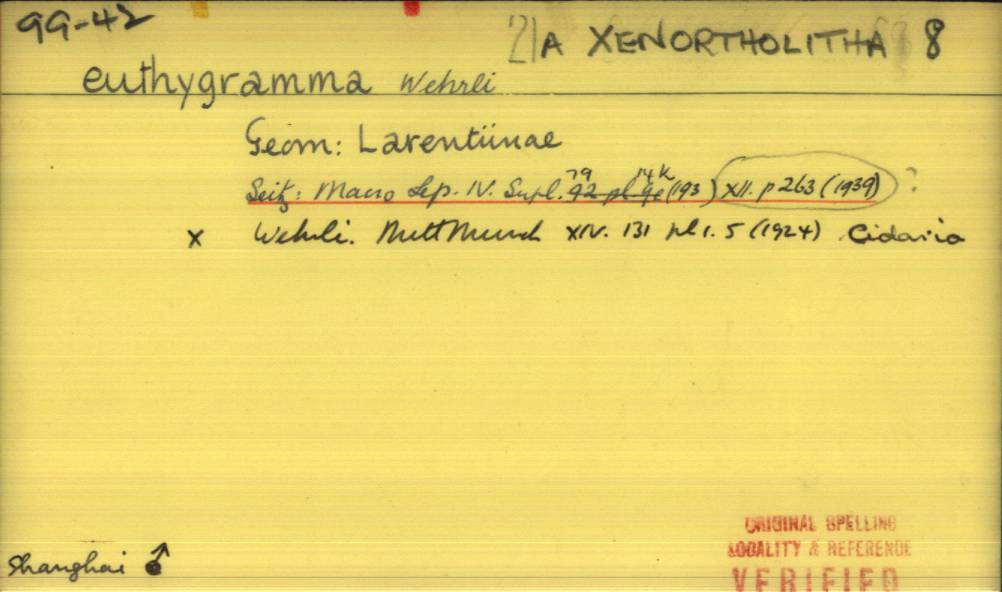 99-42
21A XENORTHOLITHA 8
euthygramma Wehrli
Geom: Larentiinae
79 14k
Seitz: Macro Lep. IV. Supl. 92 pl 9e (193 ) XII. p 263 (1939) ?
x Wehrli. Mitt Munch XIV. 131 pl 1. 5 (1924) Cidaria
Shanghai ♂
ORIGINAL SPELLING
LOCALITY & REFERENCE
VERIFIED